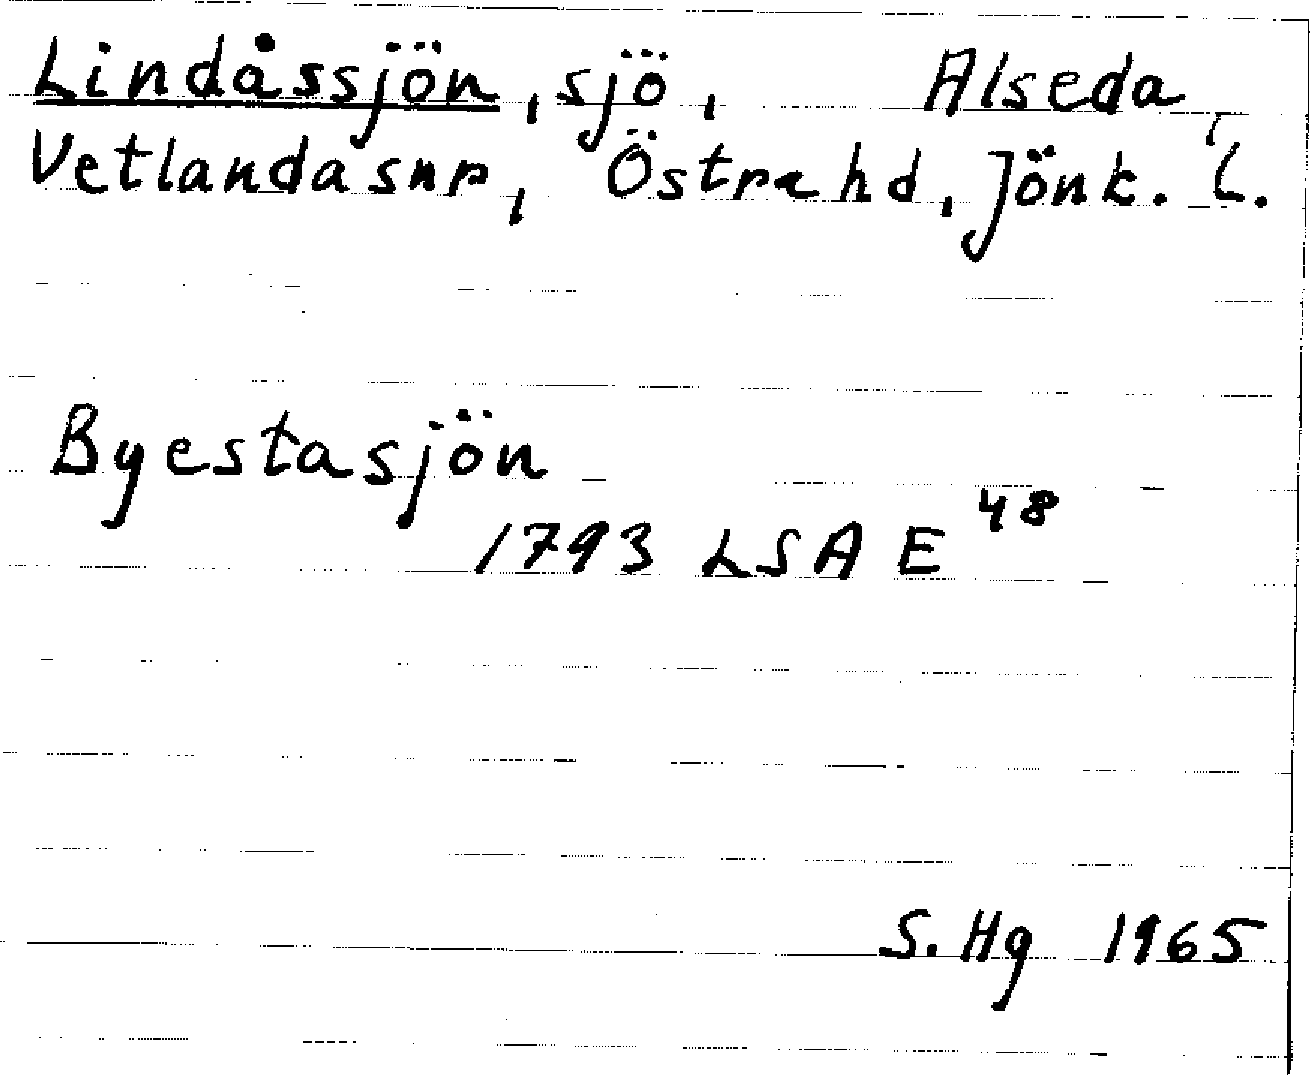 Lindåssjön, sjö, Alseda,
Vetlanda snr, Östra hd, Jönk. L.
Byestasjön
1793 LSA E 48
S. Hg 1965